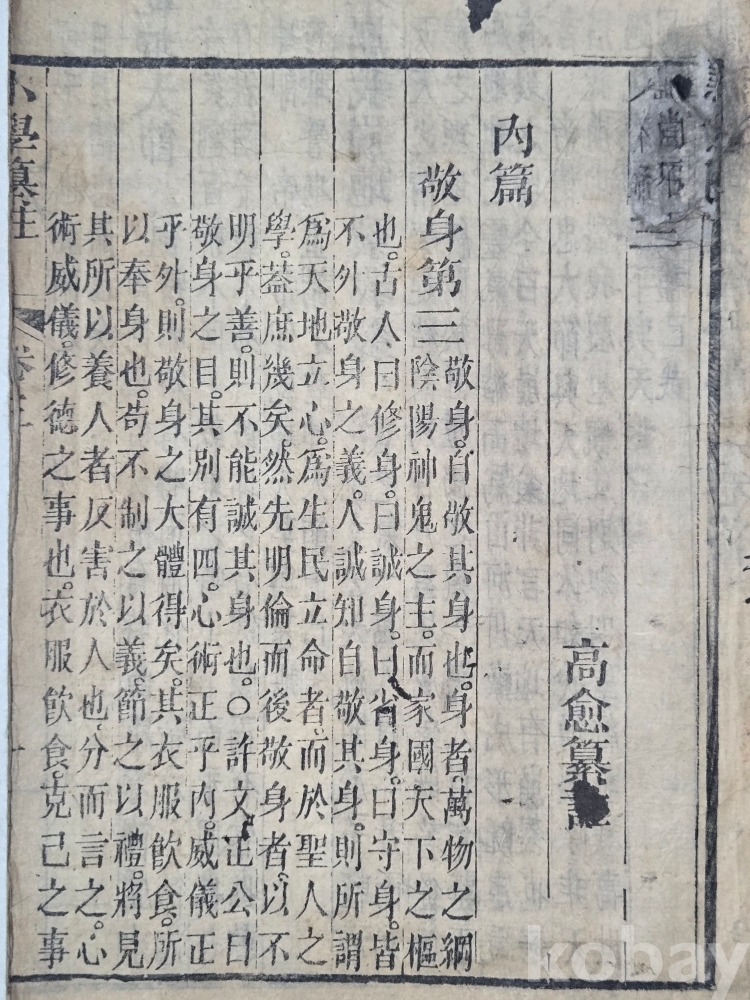 三
高愈纂註
內篇
敬身第三
敬身。自敬其身也。身者。萬物之綱
陰陽神鬼之主。而家國天下之樞
也。古人曰修身。曰誠身。曰省身。曰守身。皆
不外敬身之義。人誠知自敬其身。則所謂
爲天地立心。爲生民立命者。而於聖人之
學。葢庶幾矣。然先明倫而後敬身者。以不
明乎善。則不能誠其身也。○許文正公曰
敬身之目。其別有四。心術正乎內。威儀正
乎外。則敬身之大體得矣。其衣服飲食。所
以奉身也。苟不制之以義。節之以禮。將見
其所以養人者反害於人也。分而言之。心
術威儀。修德之事也。衣服飲食。克己之事
小學纂註 卷三
kobay